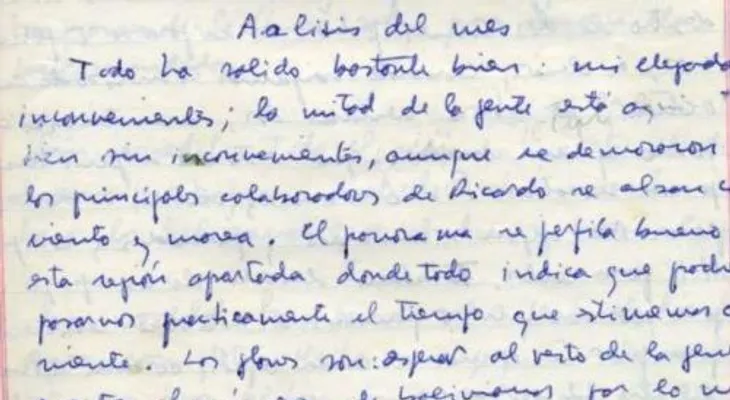 Analisis del mes
Todo ha salido bastante bien: mi llegada
inconvenientes; la mitad de la gente está aqu
bien sin inconvenientes, aunque se demoraron
los principales colaboradores de Ricardo se alzan c
viento y marea. El panorama se perfila bueno
esta región apartada donde todo indica que podr
pasarnos practicamente el tiempo que estimemos c
niente. Los planes son: esperar el resto de la gen
bolivianos por lo